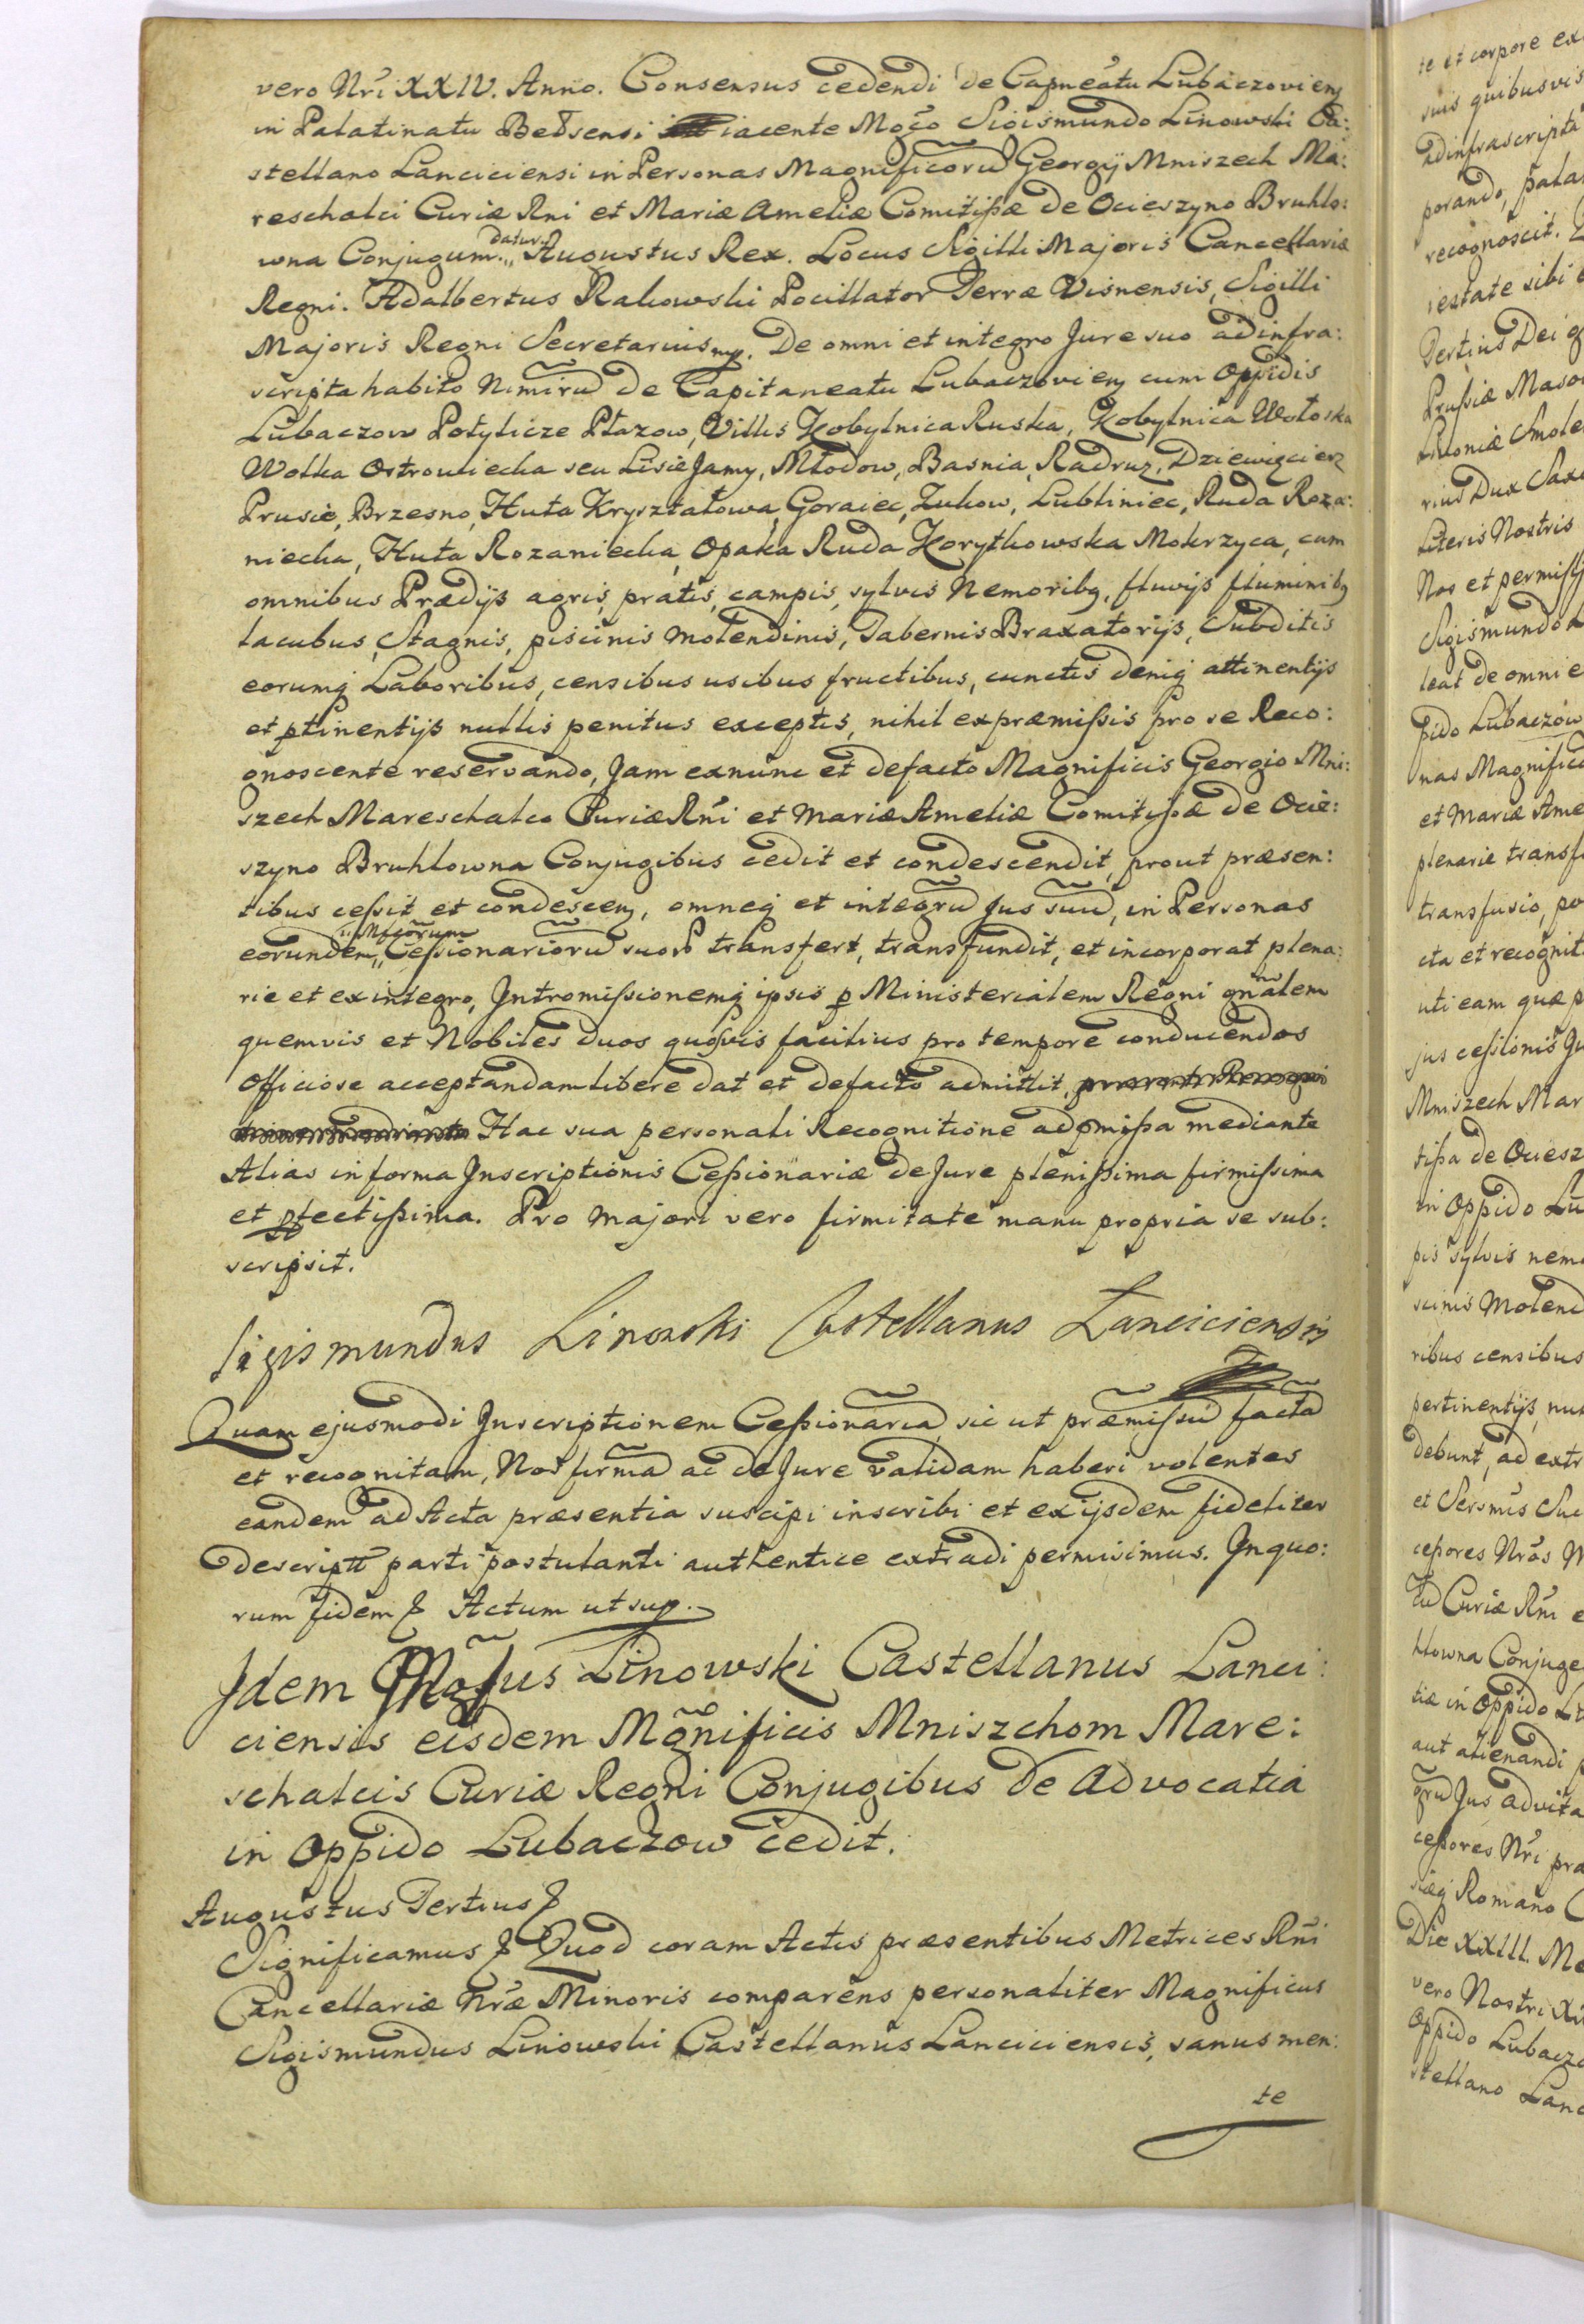 vero Nri XXIV. Anno. Consensus cedendi de Capneatu Lubaczovien
in Palatinatu Bełsensi iacente Mgco Sigismundo Linowski Ca:
stellano Lanciciensi in Personas Magnificorũ Georgij Mniszech Ma:
reschalci Curiæ Rni et Mariæ Ameliæ Comitißæ de Ocieszyno Bruhlo:
wna Conjugum. datur. Augustus Rex. Locus Sigilli Majoris Cancellariæ
Regni. Adalbertus Rakowski Pocillator Terræ Visnensis, Sigilli
Majoris Regni Secretarius mp. De omni et integro Jure suo ad infra:
scripta habito Nimirũ de Capitaneatu Lubaczovien cum Oppidis
Lubaczow Potylicze Płazow, Villis Kobylnica Ruska, Kobylnica Wołoska
Wolka Ostrowiecka seu Lisie Jamy, Młodow, Basnia, Radruz, Dziewięcierz
Prusie, Brzesno, Huta Kryształowa, Goraiec, Zukow, Lubliniec, Ruda Roza:
niecka, Huta Rozaniecka, Opaka Ruda Korytkowska Mokrzyca, cum
omnibus Prædijs agris, pratis, campis, sylvis Nemoribq, fluvijs fluminibq
lacubus, Stagnis, piscinis molendinis, Tabernis Braxatorijs, Subditis
eorumq Laboribus, censibus usibus fructibus, cunctis deniq attinentijs
et ptinentijs nullis penitus exceptis, nihil ex præmißis pro se Reco:
gnoscente reservando, Jam exnunc et defacto Magnificis Georgio Mni:
szech Mareschalco Curiæ Rni et Mariæ Ameliæ Comitißæ de Ocie:
szyno Bruhlowna Conjugibus cedit et condescendit, prout præsen:
tibus ceßit et condescen, omneq et integrũ Jus suũ, in Personas
eorundem Mfcorum Ceßionariorũ suorũ transfert, transfundit, et incorporat plena:
rie et ex integro, Intromißionemq ipsis p Ministerialem Regni gnalem
quemvis et Nobiles duos quosvis facilius pro tempore conducendos
Officiose acceptandam libere dat et defacto admittit,
Hac sua personali Recognitione ad pmißa mediante
Alias in forma Inscriptionis Ceßionariæ de Jure plenißima firmißima
et pfectißima. Pro majori vero firmitate manu propria se sub:
scripsit.
Sigismundus Linowski Castellanus Lanciciensis
Quam ejusmodi Inscriptionem Ceßionariã, sic ut præmißũ factã
et recognitam, Nos firmã ac de Jure validam haberi volentes
eandem ad Acta præsentia suscipi inscribi et ex ijsdem fideliter
descriptã parti postulanti authentice extradi permisimus. In quo:
rum fidem & Actum ut sup.
Idem Mgfus Linowski Castellanus Lanci:
ciensis eisdem Mgnificis Mniszchom Mare:
schalcis Curiæ Regni Conjugibus de Advocatia
in Oppido Lubaczow cedit.
Augustus Tertius &
Significamus & Quod coram Actis præsentibus Metrices Rni
Cancellariæ Nræ Minoris comparens personaliter Magnificus
Sigismundus Linowski Castellanus Lanciciensis, sanus men:
te
te et corpore ex
suis quibusvis
ad infrascripta
porando, pala
recognoscit.
iestate sibi
Tertius Dei g
Prußiæ Maso
Livoniæ Smole
rius Dux Saxo
Literis Nostris
Nos et permißi
Sigismundo L
leat de omni e
pido Lubaczow
nas Magnifico
et Mariæ Ame
plenarie transf
transfusio, po
cta et recognit
uti eam quæ p
jus ceßionis Ju
Mniszech Mar
tißa de Ociesz
in Oppido Lu
pis sylvis nemo
scinis Molend
ribus censibus
pertinentijs, nul
debunt, ad extr
et Sersmis Suc
ceßores Nros M
Curiæ Rni e
hlowna Conjuge
tiæ in Oppido Lu
aut alienandi p
grũ Jus advita
ceßores Nri pra
siæq Romano C
Die XXIII. Me
vero Nostri XX
Oppido Lubaczo
stellano Lanc